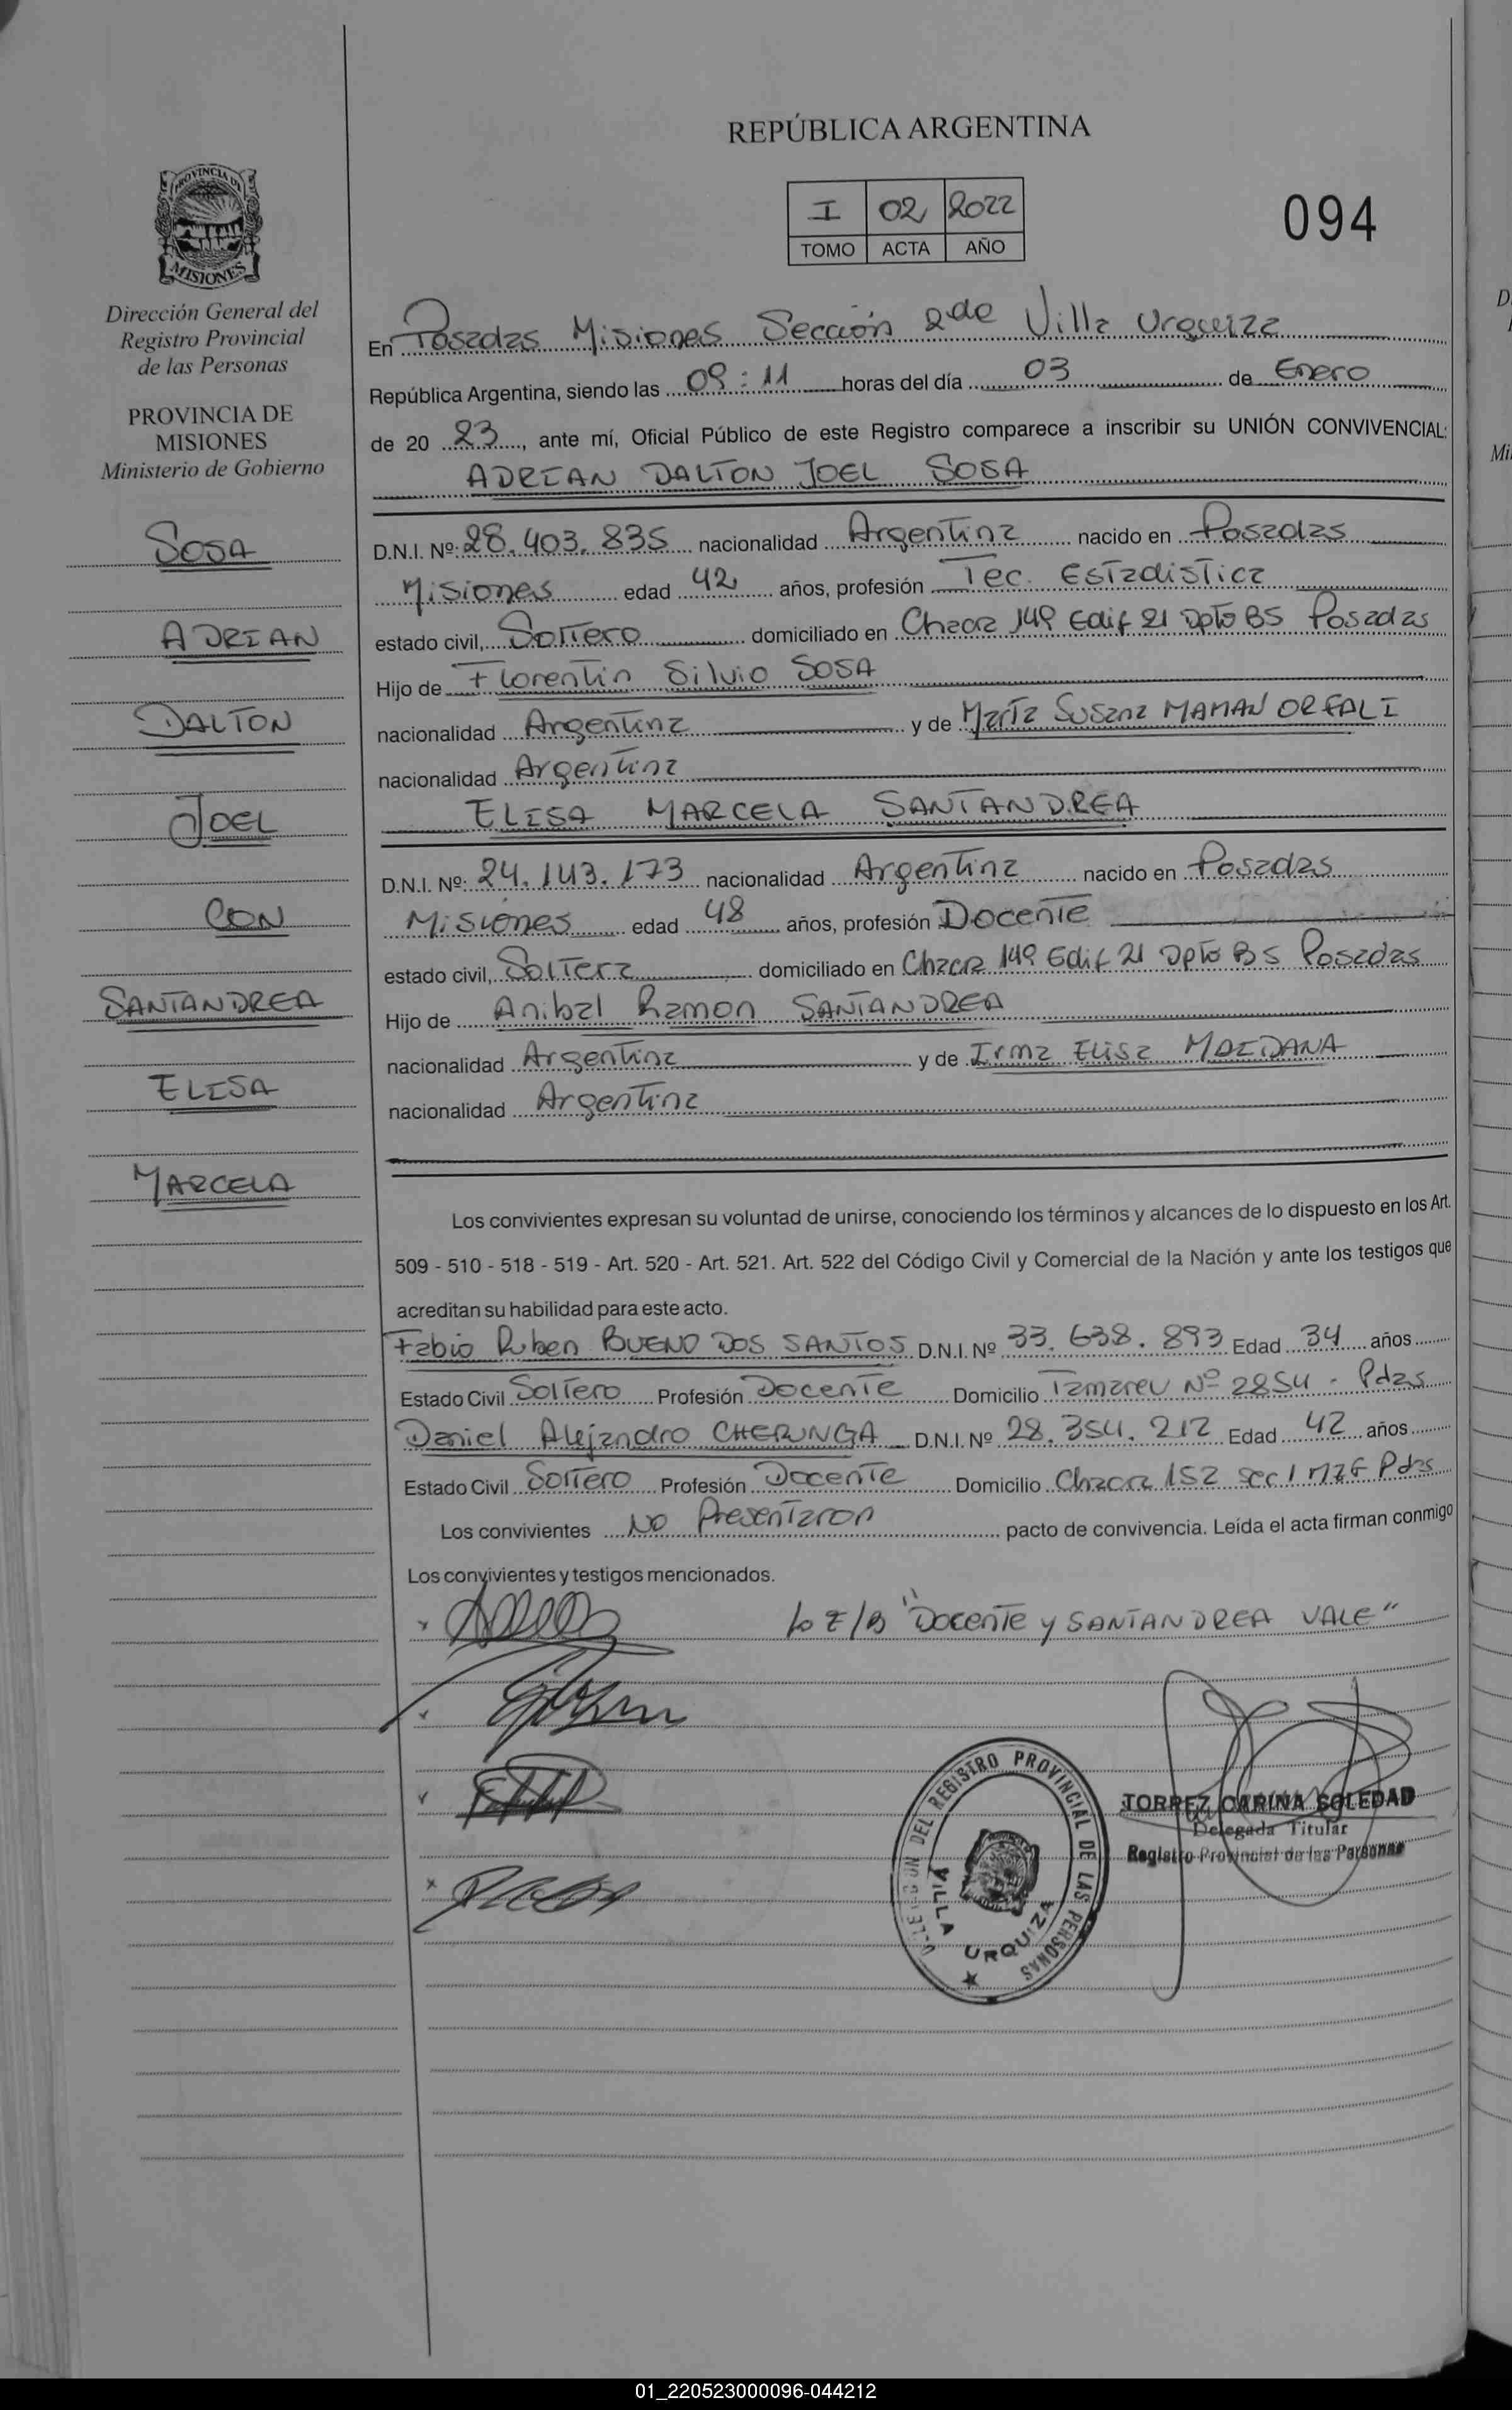 REPÚBLICA ARGENTINA
I 02 2022
TOMO ACTA AÑO
094
PROVINCIA DE
MISIONES
Dirección General del
Registro Provincial
de las Personas
PROVINCIA DE
MISIONES
Ministerio de Gobierno
SOSA
ADRIAN
DALTON
JOEL
CON
SANTANDREA
ELISA
MARCELA
En Posadas Misiones Sección 2da Villa Urquiza
República Argentina, siendo las 09:11 horas del día 03 de Enero
de 20 23, ante mí, Oficial Público de este Registro comparece a inscribir su UNIÓN CONVIVENCIAL:
ADRIAN DALTON JOEL SOSA
D.N.I. Nº: 28.403.835 nacionalidad Argentina nacido en Posadas
Misiones edad 42 años, profesión Tec. Estadistica
estado civil, Soltero domiciliado en Chacra 149 Edif 21 Dpto B5 Posadas
Hijo de Florentin Silvio SOSA
nacionalidad Argentina y de Marta Susana MAMAN ORFALI
nacionalidad Argentina
ELISA MARCELA SANTANDREA
D.N.I. Nº: 24.143.173 nacionalidad Argentina nacido en Posadas
Misiones edad 48 años, profesión Docente
estado civil, Soltera domiciliado en Chacra 149 Edif 21 Dpto B5 Posadas
Hijo de Anibal Ramon SANTANDREA
nacionalidad Argentina y de Irma Elisa MAIDANA
nacionalidad Argentina
Los convivientes expresan su voluntad de unirse, conociendo los términos y alcances de lo dispuesto en los Art.
509 - 510 - 518 - 519 - Art. 520 - Art. 521. Art. 522 del Código Civil y Comercial de la Nación y ante los testigos que
acreditan su habilidad para este acto.
Fabio Ruben BUENO DOS SANTOS D.N.I. Nº 33.638.893 Edad 34 años
Estado Civil Soltero Profesión Docente Domicilio Tamareu Nº 2854 - Pdas
Daniel Alejandro CHERUNGA D.N.I. Nº 28.354.212 Edad 42 años
Estado Civil Soltero Profesión Docente Domicilio Chacra 152 Sec 1 Pdas
Los convivientes No Presentaron pacto de convivencia. Leída el acta firman conmigo
Los convivientes y testigos mencionados.
lo E/B "Docente y SANTANDREA VALE"
DEL REGISTRO PROVINCIAL DE LAS PERSONAS
VILLA URQUIZA
TORREZ CARINA SOLEDAD
Delegada Titular
Registro Provincial de las Personas
01_220523000096-044212